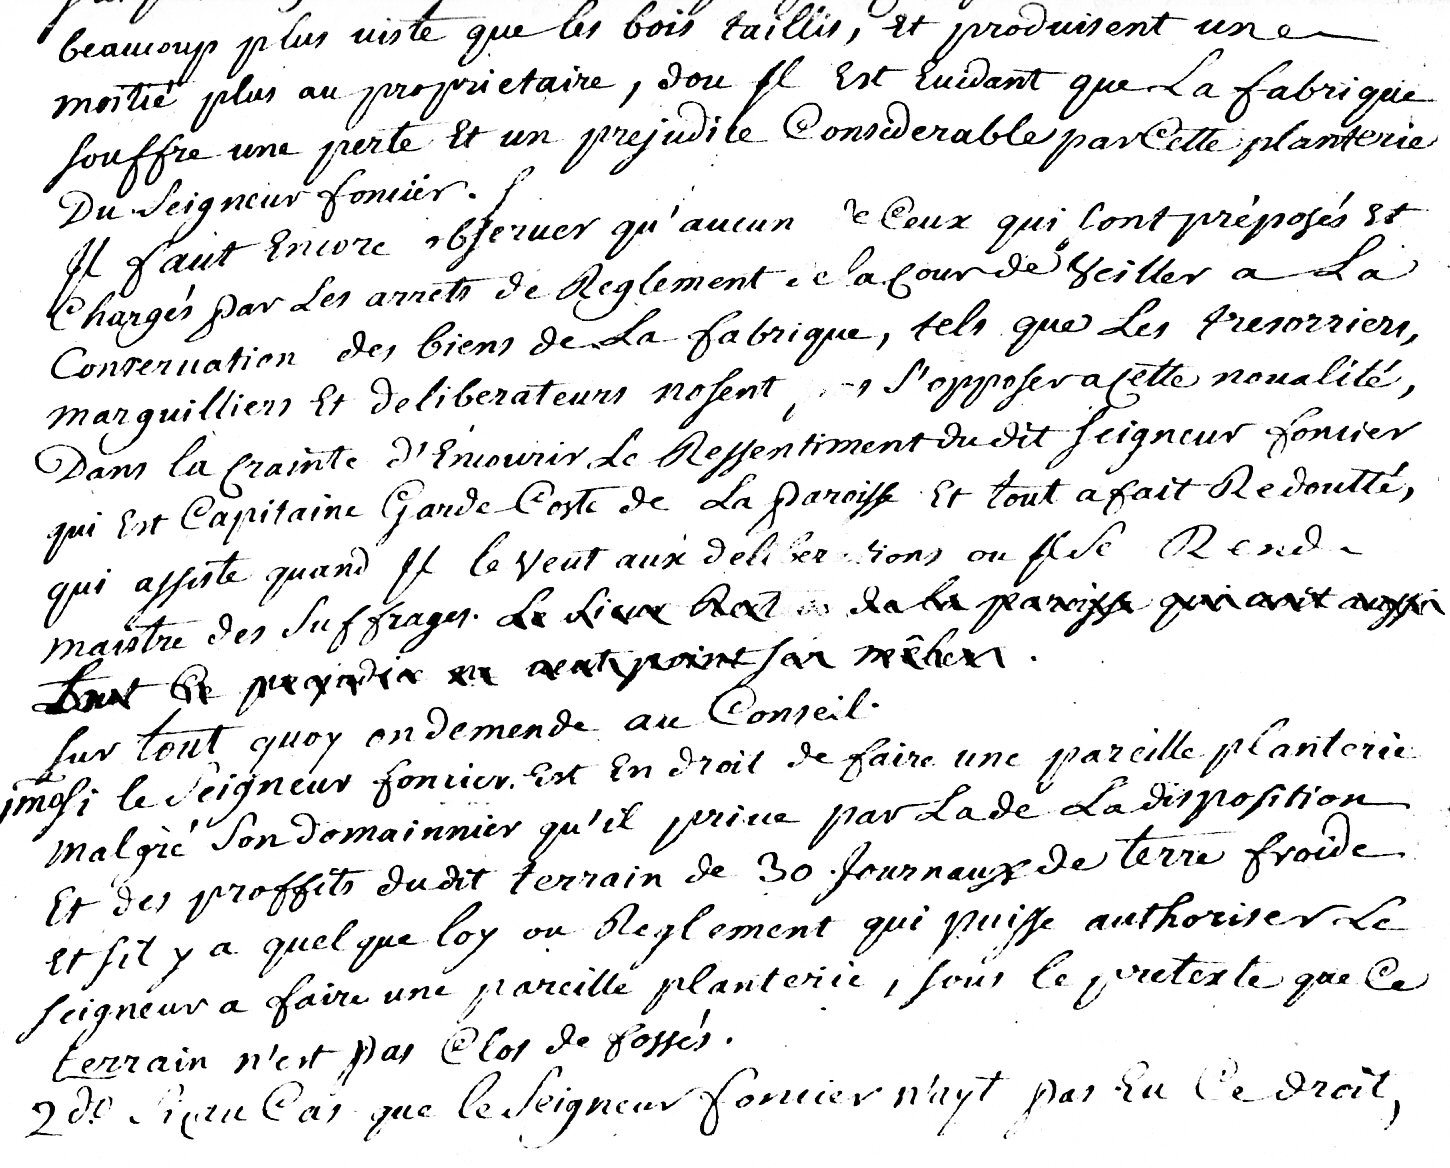 beaucoup plus viste que les bois taillis, et produisent une
moitié plus au proprietaire, dou Il Est Euidant que La fabrique
souffre une perte Et un prejudice Considerable par Cette planterie
Du Seigneur foncier.
Il faut Encore observer qu'aucun de Ceux qui sont préposés Et
Chargés par Les arrets de Reglement de la Cour de Veiller a La
Conseruation des biens de La fabrique, tels que Les tresorriers,
marguilliers Et deliberateurs nosent pas S'opposer a Cette noualité,
Dans la Crainte d'Encourir Le Ressentiment du dit Seigneur foncier
qui Est Capitaine Garde Coste de La paroisse Et tout a fait Redoutté,
qui assiste quand Il le Veut aux deliberations ou Il se Rend
maistre des suffrages. Le de la paroisse qui
tout le point
sur tout quoy on demende au Conseil.
1mo si le Seigneur foncier Est En droit de faire une pareille planterie
malgré Son domainnier qu'il priue par La de La disposition
Et des proffits du dit terrain de 30 Journaux de terre froide
Et sil y a quelque loy ou Reglement qui puisse authoriser Le
seigneur a faire une pareille planterie, sous le pretexte que Ce
terrain n'est pas Clos de fossés.
2do Si au Cas que le Seigneur foncier n'ayt pas Eu Ce droit,